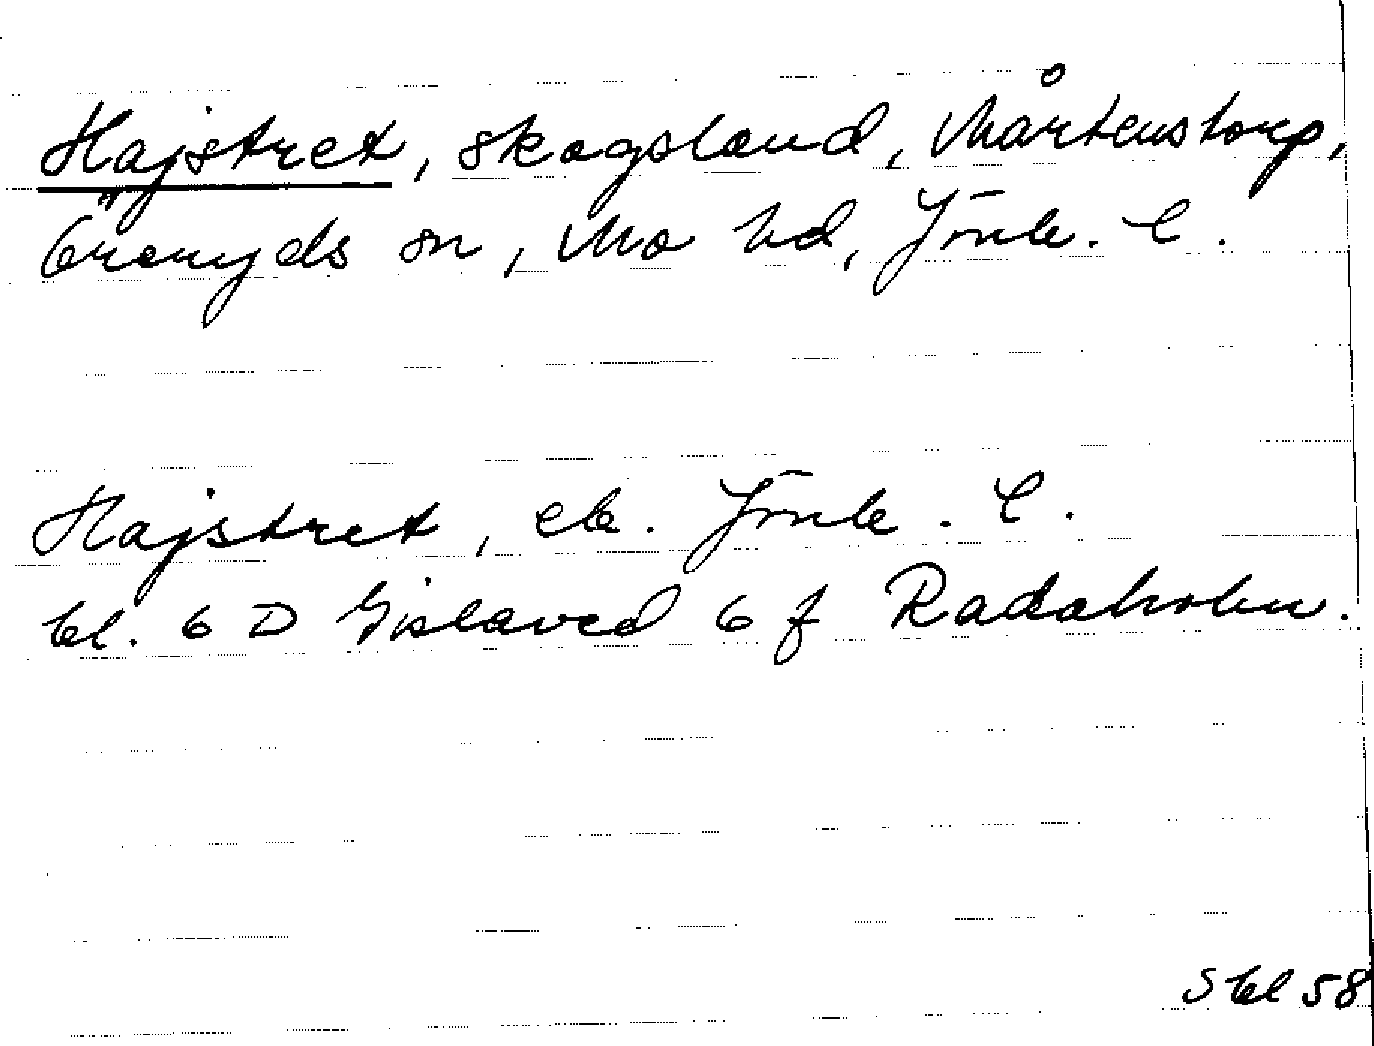 Hajstret, skogsland, Mårtenstorp,
Öreryds sn, Mo hd, Jönk. l.
Hajstret, ek. Jönk. l.
bl. 6 D Gislaved 6 f Radaholm.
S bl 58